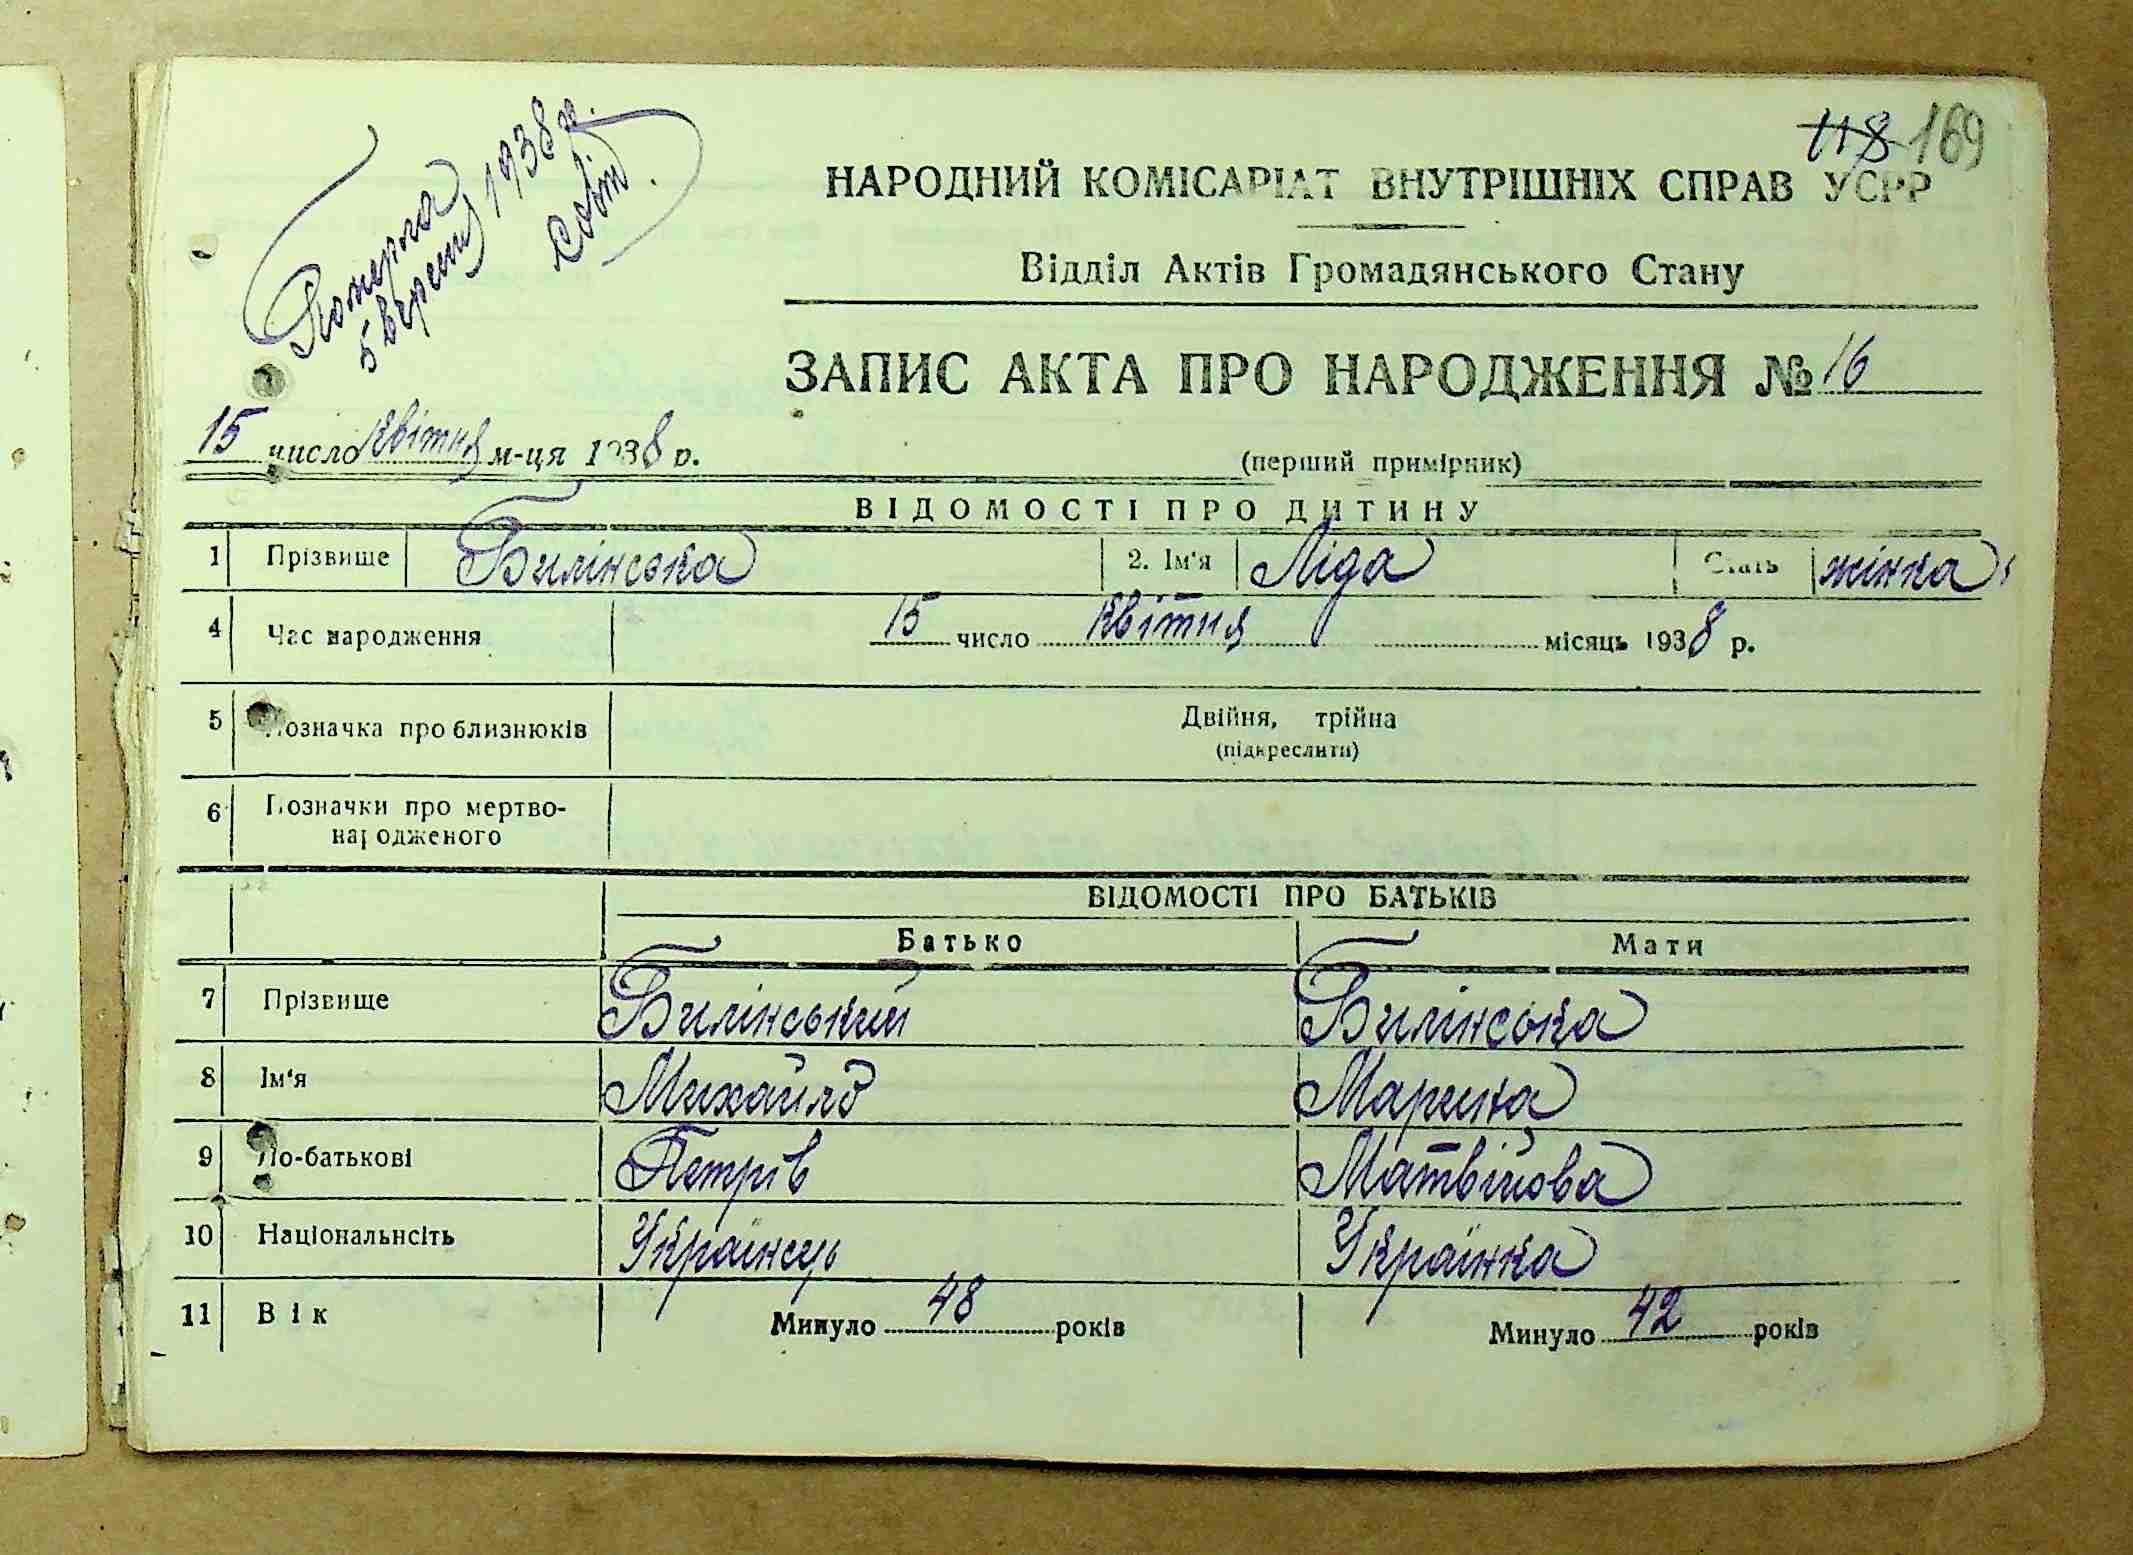 Померла
5 вересня 1938 р.
118 169
НАРОДНИЙ КОМІСАРІАТ ВНУТРІШНІХ СПРАВ УСРР
Відділ Актів Громадянського Стану
ЗАПИС АКТА ПРО НАРОДЖЕННЯ № 16
15 число квітня м-ця 1938 р.
(перший примірник)
ВІДОМОСТІ ПРО ДИТИНУ
1 Прізвище Билінська 2. Ім'я Ліда Стать жінка
4 Час народження 15 число квітня місяць 1938 р.
5 Позначка про близнюків Двійня, трійна
(підкреслити)
6 Позначки про мертво-
народженого
ВІДОМОСТІ ПРО БАТЬКІВ
Батько Мати
7 Прізвище Билінський Билінська
8 Ім'я Михайло Марина
9 По-батькові Петрів Матвійова
10 Національнсіть Українець Українка
11 Вік Минуло 48 років Минуло 42 років